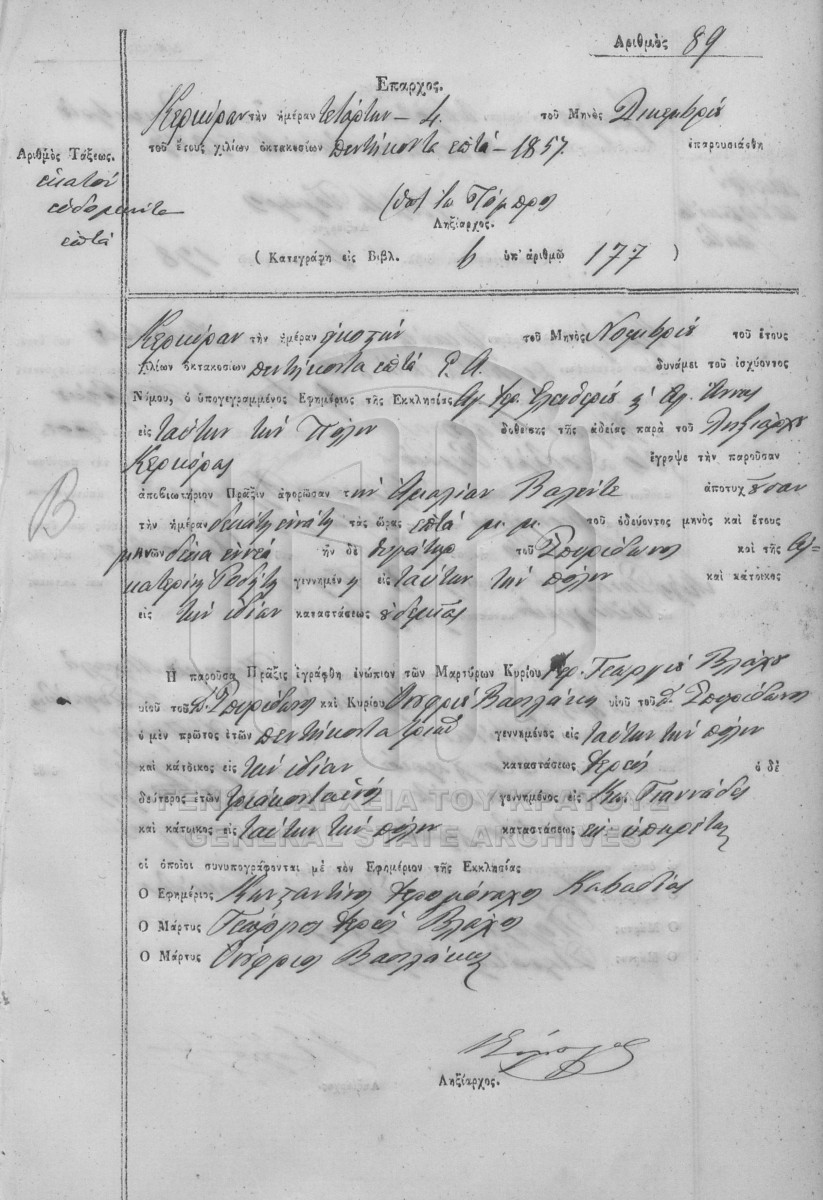 Αριθμὸς 89
Επαρχος.
Κερκύραν τὴν ἡμέραν τετάρτην - 4. τοῦ Μηνὸς Δεκεμβρίου
τοῦ ἔτους χιλίων ὀκτακοσίων πεντήκοντα επτά - 1857. ἐπαρουσιάσθη
Αριθμὸς Τάξεως.
εκατον
εβδομηντα
επτά
Ληξίαρχος.
( Κατεγράφη εἰς Βιβλ. 6 ὑπ' ἀριθμῶ 177 )
Κερκύραν τὴν ἡμέραν εικοστήν τοῦ Μηνὸς Νοεμβρίου τοῦ ἔτους
χιλίων ὀκτακοσίων πεντήκοντα επτά Ε. Π. δυνάμει τοῦ ἰσχύοντος
Νόμου, ὁ ὑπογεγραμμένος Εφημέριος τῆς Εκκλησίας Αγ. Ελευθερίου Αγ. Άννης
εἰς ταύτην την Πόλιν δοθείσης τῆς ἀδείας παρὰ τοῦ Ληξιάρχου
Κερκύρας ἔγραψε τὴν παροῦσαν
ἀποβιωτήριον Πρᾶξιν ἀφορῶσαν την Αμαλίαν Βαλέντε ἀποτυχουσαν
τὴν ἡμέραν δεκάτη εννάτη τὰς ὥρας επτά μ. μ. τοῦ ὁδεύοντος μηνὸς καὶ ἔτους
μηνῶν δέκα εννέα ἦν δὲ θυγάτηρ τοῦ Σπυρίδωνος καὶ τῆς Αι-
κατερίνης γεννημένη εἰς ταύτην την πόλιν καὶ κάτοικος
εἰς την ιδίαν καταστάσεως ουδεμίας
Η παροῦσα Πρᾶξις ἐγράφθη ἐνώπιον τῶν Μαρτύρων Κυρίου Γεωργίου Βλάχου
υἱοῦ τοῦ Σπυρίδωνος καὶ Κυρίου Ονοφρίου Βασιλάκη υἱοῦ τοῦ Σπυρίδωνος
ὁ μὲν πρῶτος ἐτῶν πεντήκοντα τριών γεννημένος εἰς ταύτην την πόλιν
καὶ κάτοικος εἰς την ιδίαν καταστάσεως Ιερεύς ὁ δὲ
δεύτερος ἐτῶν τριάκοντα γεννημένος εἰς Χω. Γιαννάδες
καὶ κάτοικος εἰς ταύτην την πόλιν καταστάσεως υπηρέτης
οἱ ὁποῖοι συνυπογράφονται μὲ τὸν Εφημέριον τῆς Εκκλησίας
Ο Εφημέριος Κωνσταντίνος Ιερομόναχος Καβασίλας
Ο Μάρτυς Γεώργιος Ιερεύς Βλάχος
Ο Μάρτυς Ονόφριος Βασιλάκης
Ληξίαρχος.
Β
ΓΕΝΙΚΑ ΑΡΧΕΙΑ ΤΟΥ ΚΡΑΤΟΥΣ
GENERAL STATE ARCHIVES